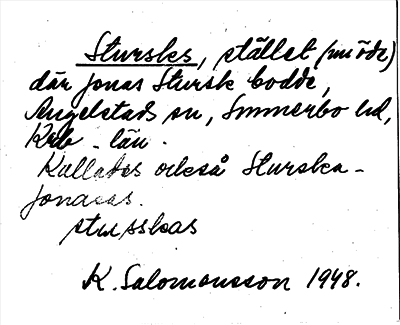 Sturskes, stället (nu öde)
där Jonas Stursk bodde,
Angelstads sn, Sunnerbo hd,
Krb - län.
Kallades också Sturska-
Jonasas.
sturskas
K. Salomonsson 1948.